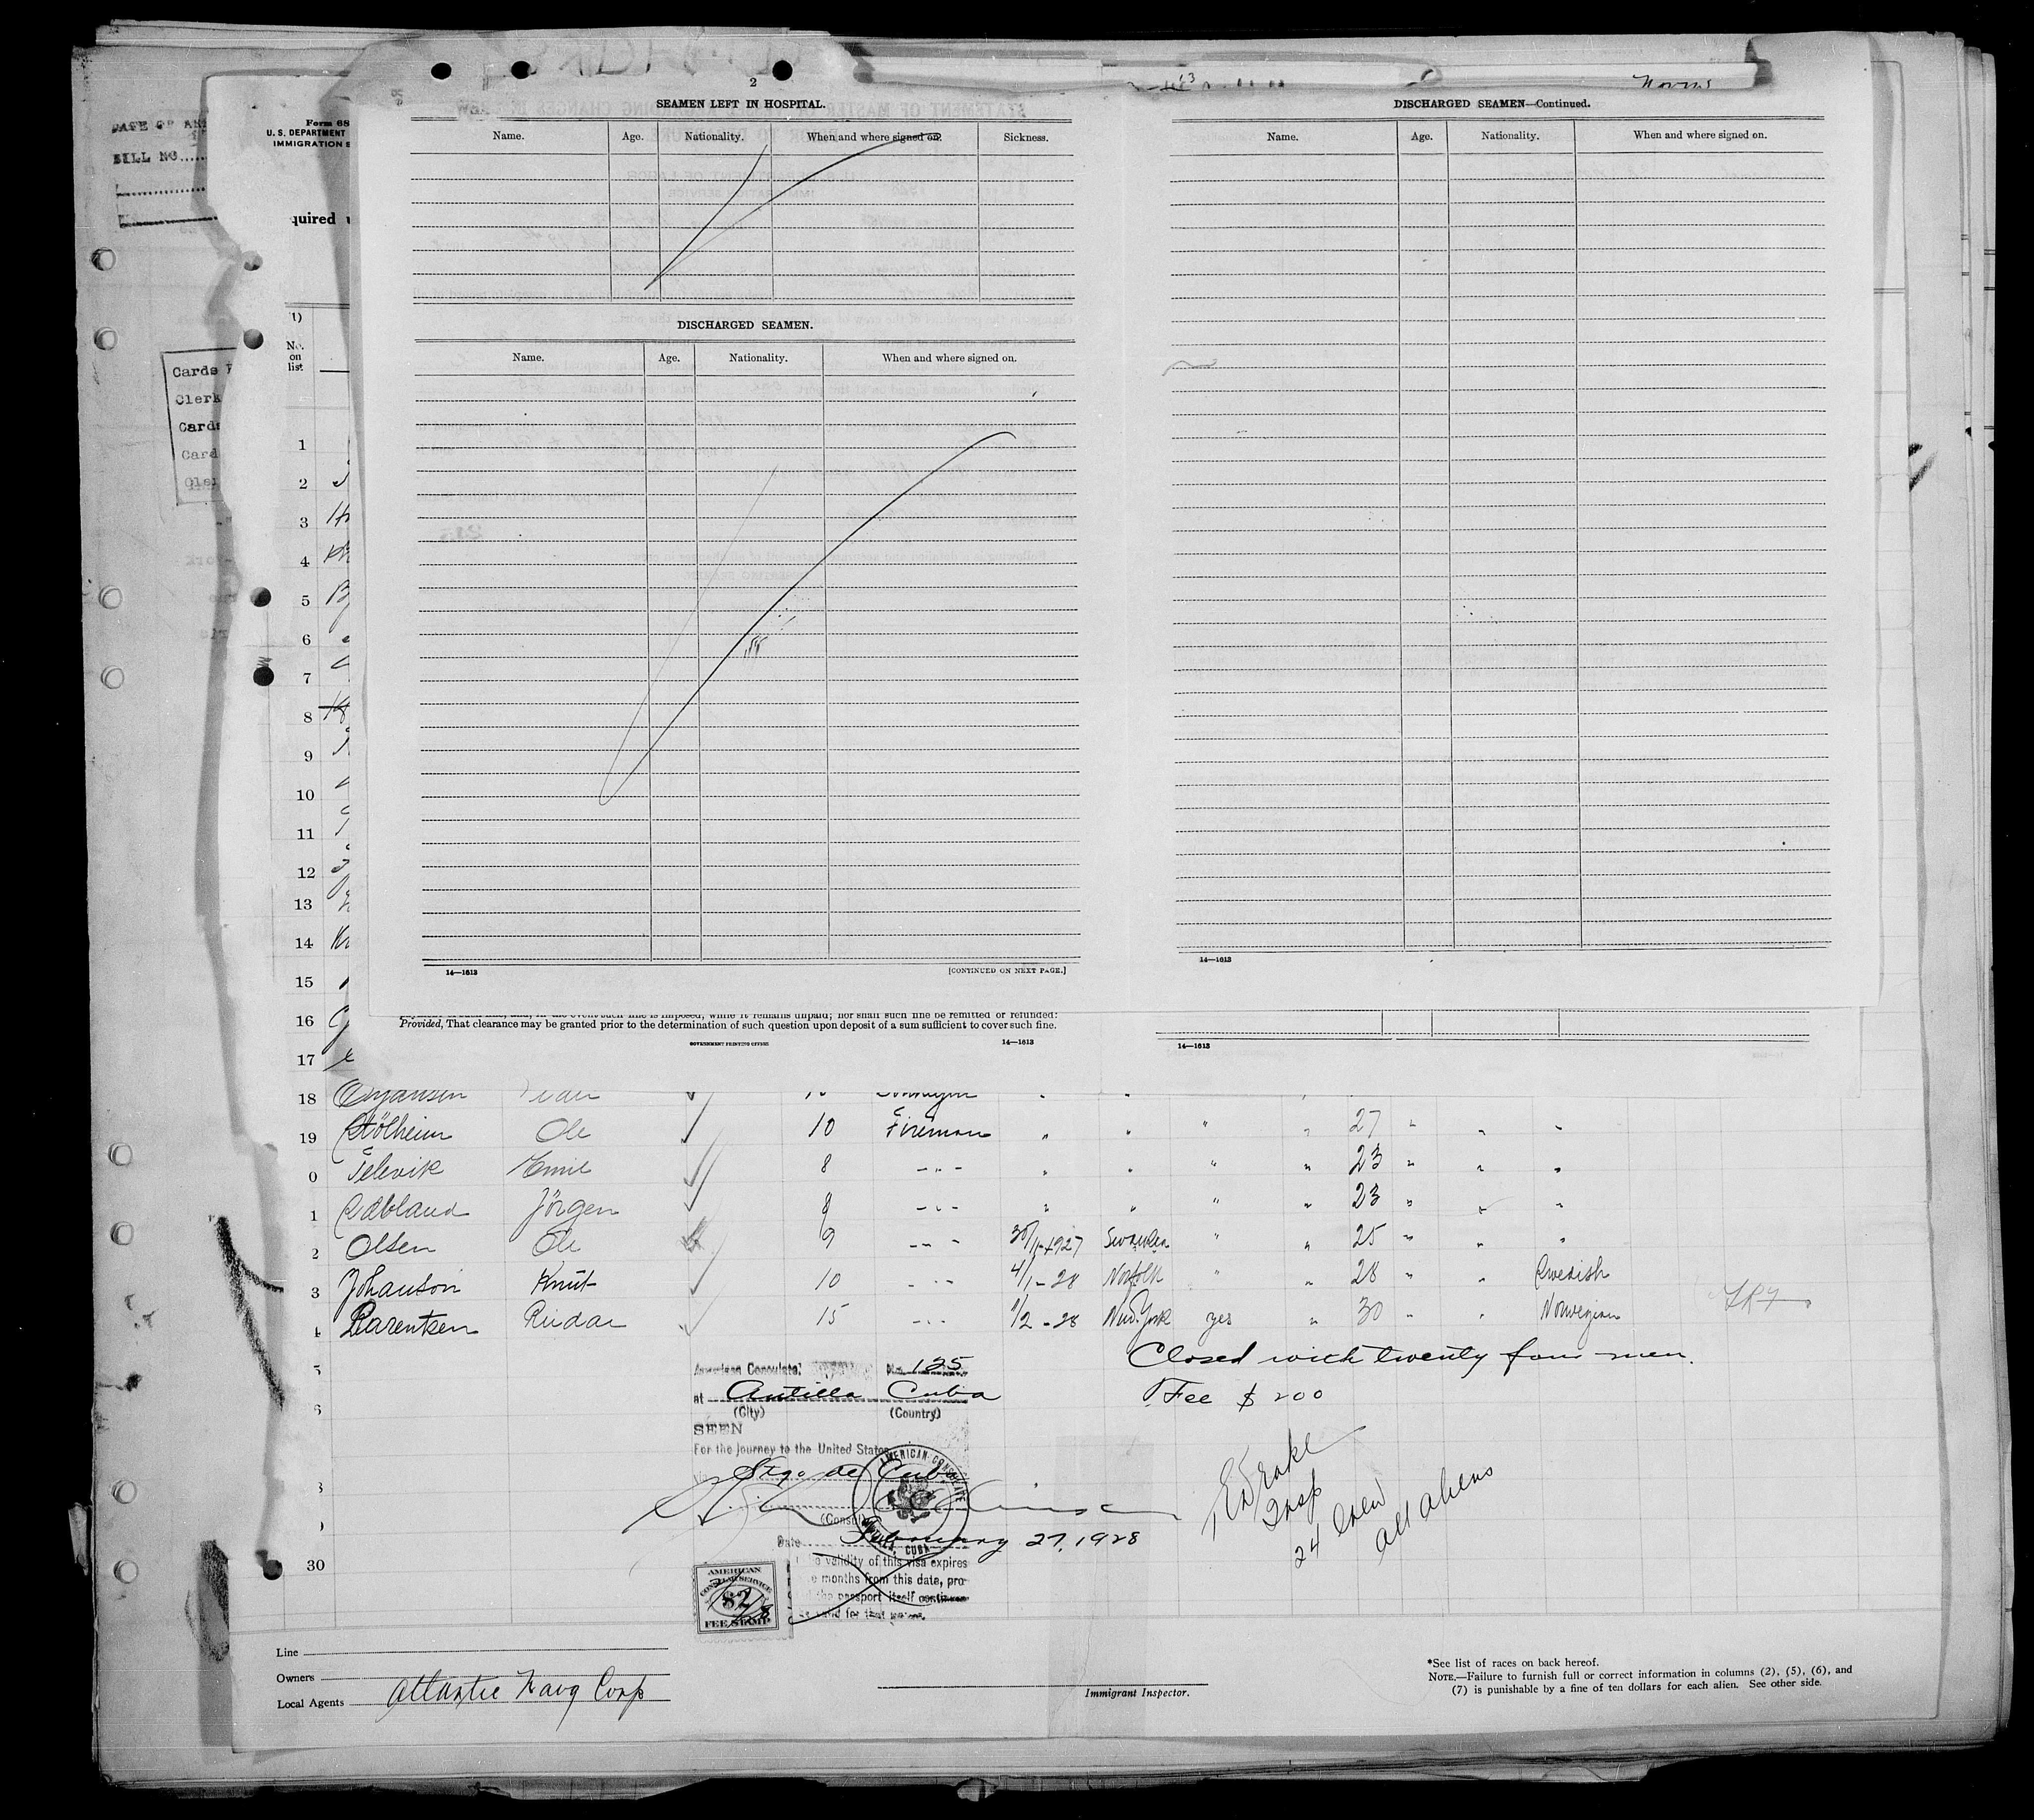 2
SEAMEN LEFT IN HOSPITAL.
Name. Age. Nationality. When and where signed on. Sickness.
DISCHARGED SEAMEN.
Name. Age. Nationality. When and where signed on.
14—1613 [CONTINUED ON NEXT PAGE.]
DISCHARGED SEAMEN—Continued.
Name. Age. Nationality. When and where signed on.
14—1613
DATE OF
BILL NO
Form 68
U. S. DEPARTMENT
IMMIGRATION
quired
No.
on
list
Cards
Clerk
Cards
Card
1
2
3
4
5
6
7
8
9
10
11
12
13
14
15
16
17
Provided, That clearance may be granted prior to the determination of such question upon deposit of a sum sufficient to cover such fine.
GOVERNMENT PRINTING OFFICE 14—1613
14—1613
18
19 Stölheim Ole 10 Fireman " " " " 27 " " "
0 Televik Emil 8 -"- " " " " 23 " " "
1 Jörgen 8 -"- " " " " 23 " " "
2 Olsen Ole 9 -"- 1927 " " 25 " " "
3 Johanson Knut 10 -"- 4/1-28 Norfolk " " 28 " " Swedish
4 Barentsen Reidar 15 -"- 1/2-28 New York yes " 30 " " Norwegian
5 American Consulate No. 125
Closed with twenty four men.
at Antilla Cuba
(City) (Country)
Fee $ 200
SEEN
For the journey to the United States
via Stgo de Cuba
AMERICAN CONSULATE
CUBA
(Consul)
Date February 27, 1928
validity of this visa expires
months from this date, pro-
the passport itself continues
valid for that
AMERICAN
CONSULAR SERVICE
FEE STAMP
Drake
Insp
24 Crew
all aliens
30
Line
Owners
Local Agents Atlantic Navg Corp
Immigrant Inspector.
*See list of races on back hereof.
NOTE.—Failure to furnish full or correct information in columns (2), (5), (6), and
(7) is punishable by a fine of ten dollars for each alien. See other side.